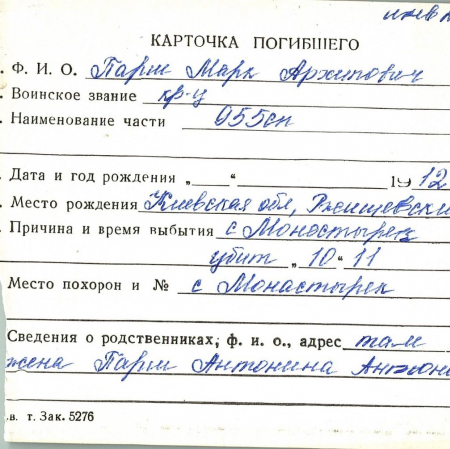 КАРТОЧКА ПОГИБШЕГО
. Ф. И. О. Парш Марк Архипович
. Воинское звание кр-ц
. Наименование части 955сп
. Дата и год рождения „ “ 1912
. Место рождения Киевская обл, Ржищевски
. Причина и время выбытия с Монастырек
убит „10“ 11
Место похорон и № с Монастырек
Сведения о родственниках, ф. и. о., адрес там
жена Парш Антонина Антоно
.в. т. Зак. 5276